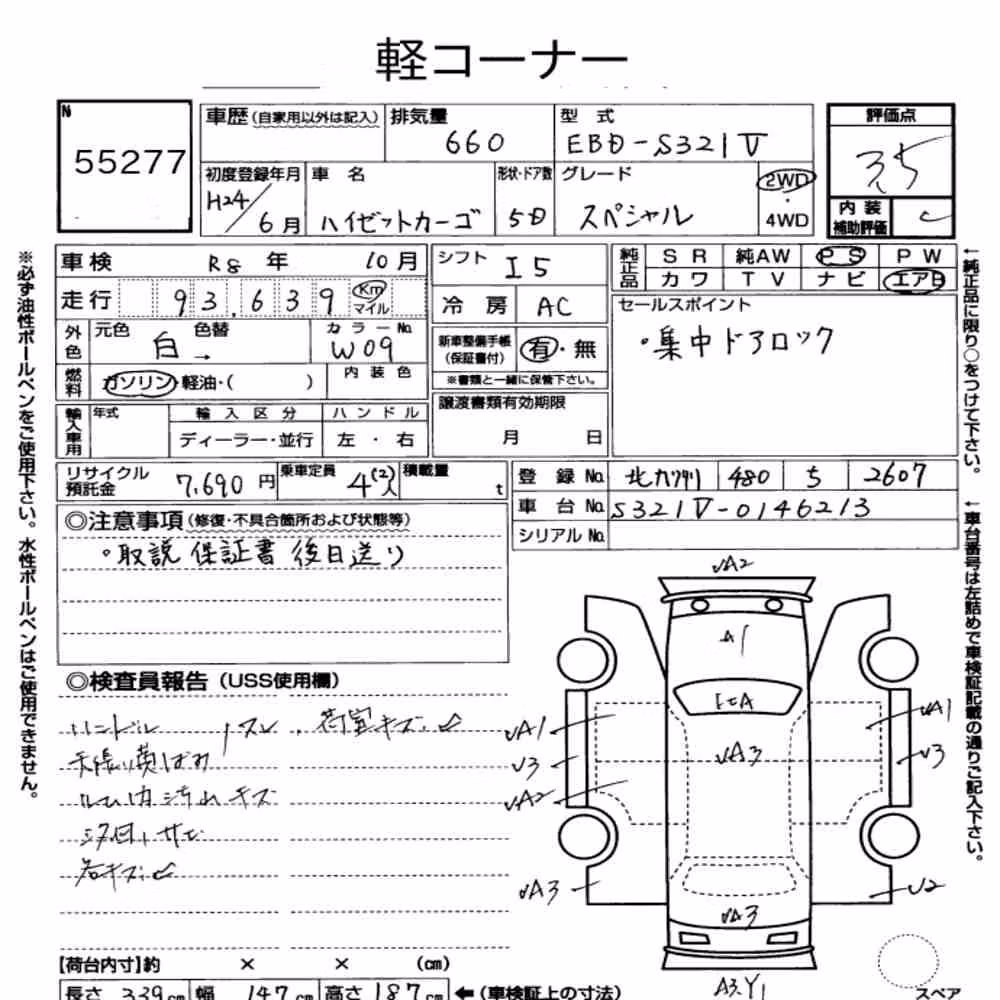 軽コーナー
№
55277
車歴 (自家用以外は記入)
排気量
660
型式
EBD-S321V
評価点
3.5
初度登録年月
H24/6月
車名
ハイゼットカーゴ
形状・ドア数
5D
グレード
スペシャル
2WD
・
4WD
内装
補助評価
C
車検 R8年 10月
走行 93,639 Km マイル
外色
元色 白 →
色替
カラーNo.
W09
燃料
ガソリン・軽油・( )
内装色
輸入車用
年式
輸入区分
ディーラー・並行
ハンドル
左・右
シフト I5
冷房 AC
新車整備手帳
(保証書付)
有・無
※書類と一緒に保管下さい。
譲渡書類有効期限
月 日
純正品
SR 純AW PS PW
カワ TV ナビ エアB
セールスポイント
・集中ドアロック
リサイクル
預託金
7,690円
乗車定員
4(2)人
積載量
t
登録No. 480 ち 2607
車台No. S321V-0146213
シリアルNo.
◎注意事項 (修復・不具合箇所および状態等)
・取説 保証書 後日送り
◎検査員報告 (USS使用欄)
ハンドル スレ、荷室キズ
天張り黄ばみ
ルーム内汚れキズ
各キズ
A2
A1
A1
A3
A1
V3
V3
A2
A3
A3
U2
A3.Y1
スペア
【荷台内寸】約 × × (cm)
長さ 339cm 幅 147cm 高さ 187cm ←(車検証上の寸法)
※必ず油性ボールペンをご使用下さい。水性ボールペンはご使用できません。
←純正品に限り○をつけて下さい。
←車台番号は左詰めで車検証記載の通りご記入下さい。